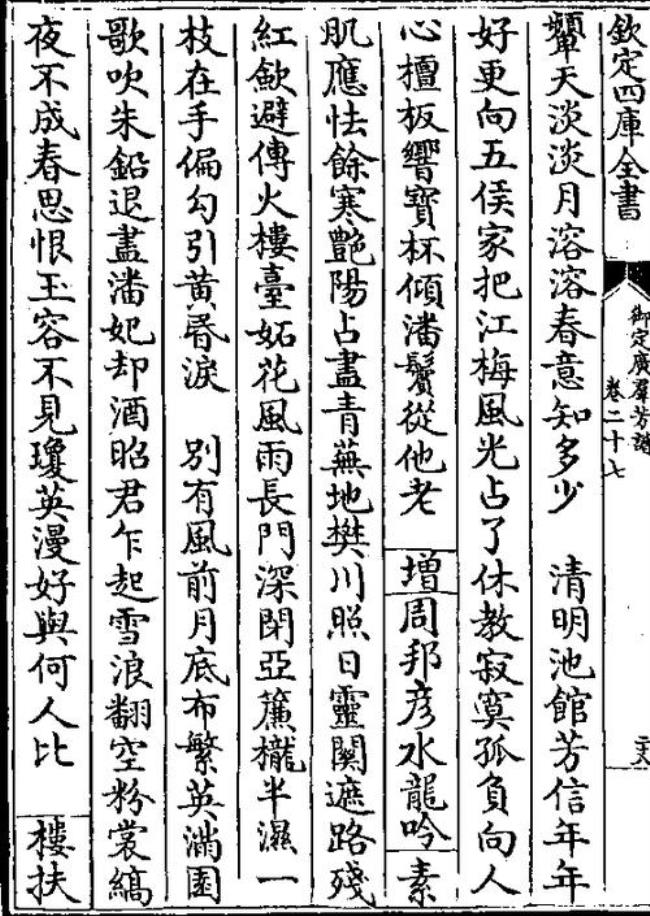 欽定四庫全書
御定廣羣芳譜
卷二十七
顰天淡淡月溶溶春意知多少　清明池館芳信年年
好更向五侯家把江梅風光占了休教寂寞孤負向人
心檀板響寶杯傾潘鬢從他老　增周邦彥水龍吟素
肌應怯餘寒艷陽占盡青蕪地樊川照日靈關遮路殘
紅歛避傳火樓臺妬花風雨長門深閉亞簾櫳半濕一
枝在手偏勾引黃昬淚　別有風前月底布繁英滿園
歌吹朱鉛退盡潘妃却酒昭君乍起雪浪翻空粉裳縞
夜不成春思恨玉容不見瓊英漫好與何人比　樓扶